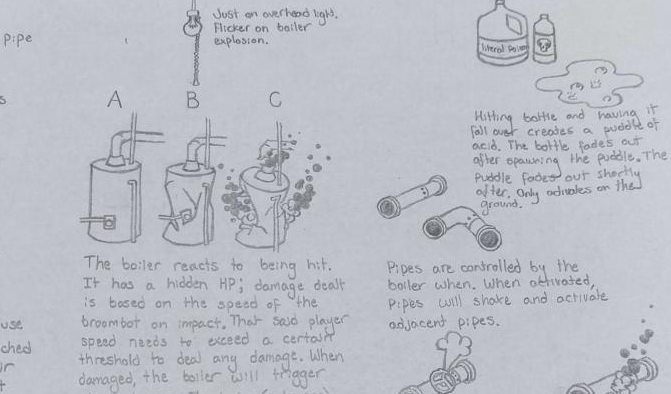 pipe
s
Just an overhead light.
Flicker on boiler
explosion.
literal Poison
Hitting bottle and having it
fall over creates a puddle of
acid. The bottle fades out
after spawning the puddle. The
puddle fades out shortly
after. Only activates on the
ground.
A B C
The boiler reacts to being hit.
It has a hidden HP; damage dealt
is based on the speed of the
broombot on impact. That said player
speed needs to exceed a certain
threshold to deal any damage. When
damaged, the boiler will trigger
Pipes are controlled by the
boiler when. When activated,
pipes will shake and activate
adjacent pipes.
use
ched
ir
t